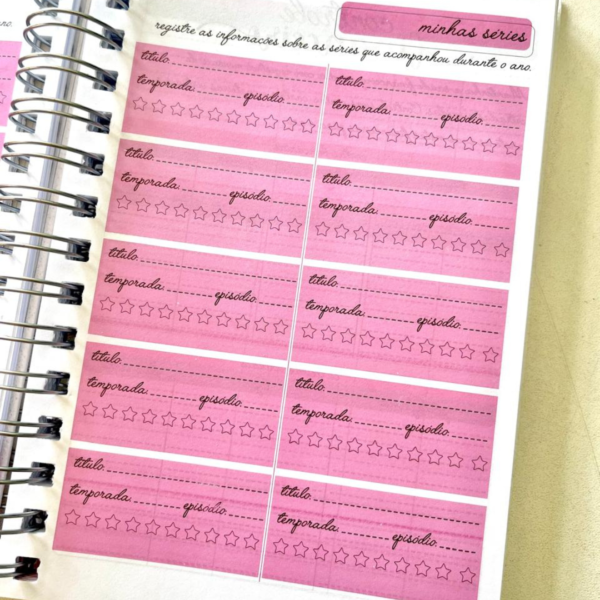 minhas séries
registre as informações sobre as séries que acompanhou durante o ano.
título
temporada episódio
título
temporada episódio
título
temporada episódio
título
temporada episódio
título
temporada episódio
título
temporada episódio
título
temporada episódio
título
temporada episódio
título
temporada episódio
título
temporada episódio
ano.